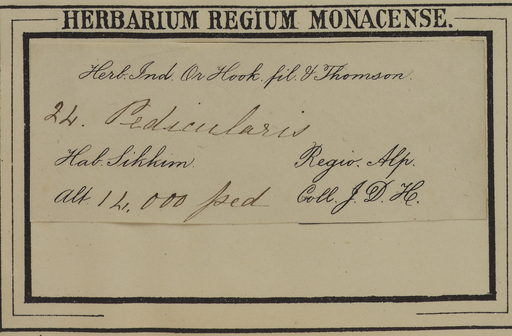 HERBARIUM REGIUM MONACENSE.
Herb. Ind. Or Hook. fil. & Thomson.
24. Pedicularis
Hab. Sikkim. Regio. Alp.
Alt. 14,000 ped Coll. J. D. H.